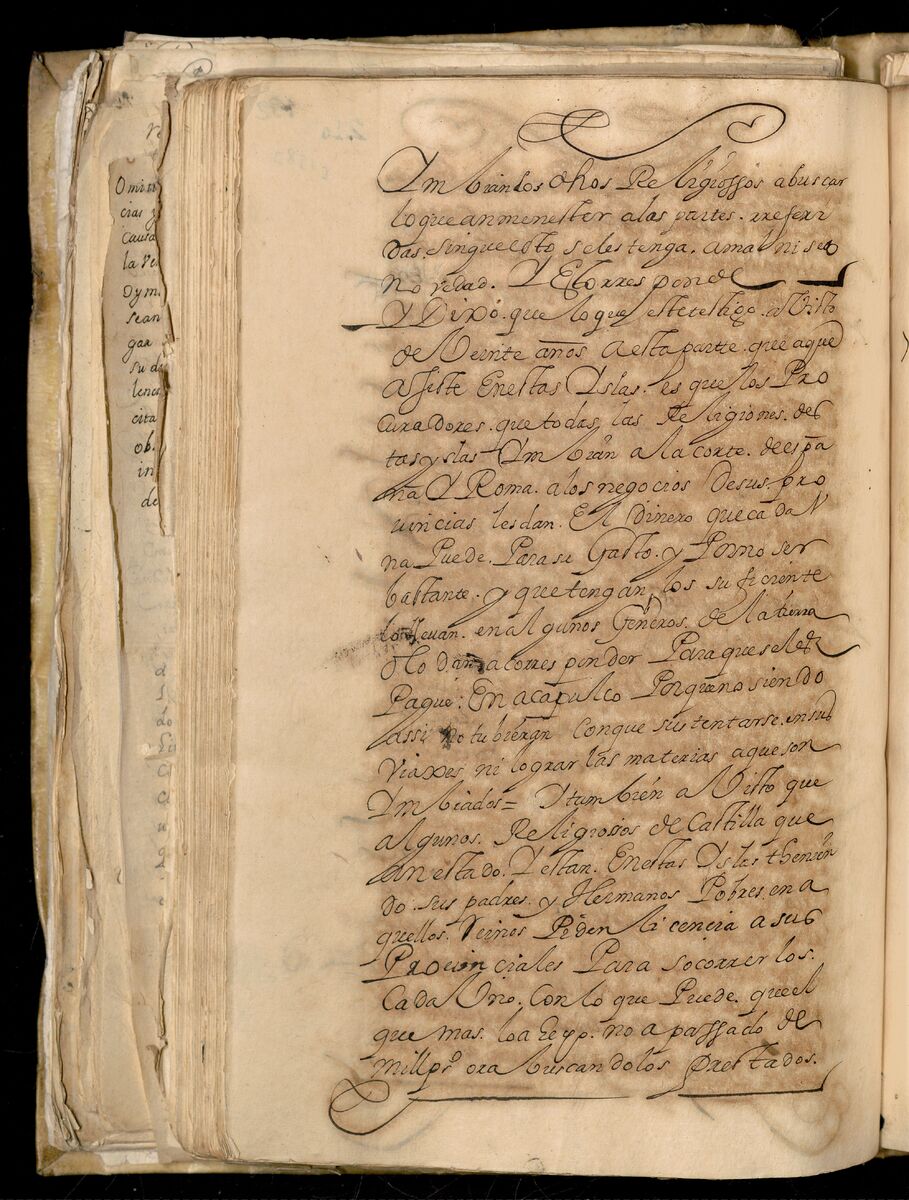 Omini
cias y
causa
la Ve
Dym
sean
gar
su d
lenci
cita
ob.
in
de
Ymbianlos dhos Religiossos abuscar
lo que an menester alas partes. rreferi
das. sinque esto seles tenga. amal ni sea
no vedad. Y Estorresponde
Y Dixo. que lo que este testigo. a Visto
de Veinte años a esta parte. que aque
assiste En estas Yslas. es que los Pro
curadores. que todas las Religiones. des
tas yslas Ymbian a la corte. de espa
ña Y Roma. a los negocios Desus. pro
uincias les dan. El Dinero que cada V
na Puede. Para su Gasto. y Porno ser
bastante. y que tengan, los suficiente
lo lleuan. en algunos Generos. de la tierra
o lo dan a corresponder Para que seles
Pague: En acapulco Porque no siendo
assi no tubieran Conque sustentarse. en sus
Viaxes, ni lograr las materias aque son
Ymbiados = Y tambien a Visto que
algunos. Religiossos de Castilla que
an estado. Y estan. En estas Yslas thenien
do. sus padres. y Hermanos Pobres. en a
quellos. Reinos Piden licencia a sus
Prouinciales Para socorrerlos.
Cada Vno. Con lo que Puede. que el
que mas. loa no a passado de
mill ps ora buscandolos Prestados.